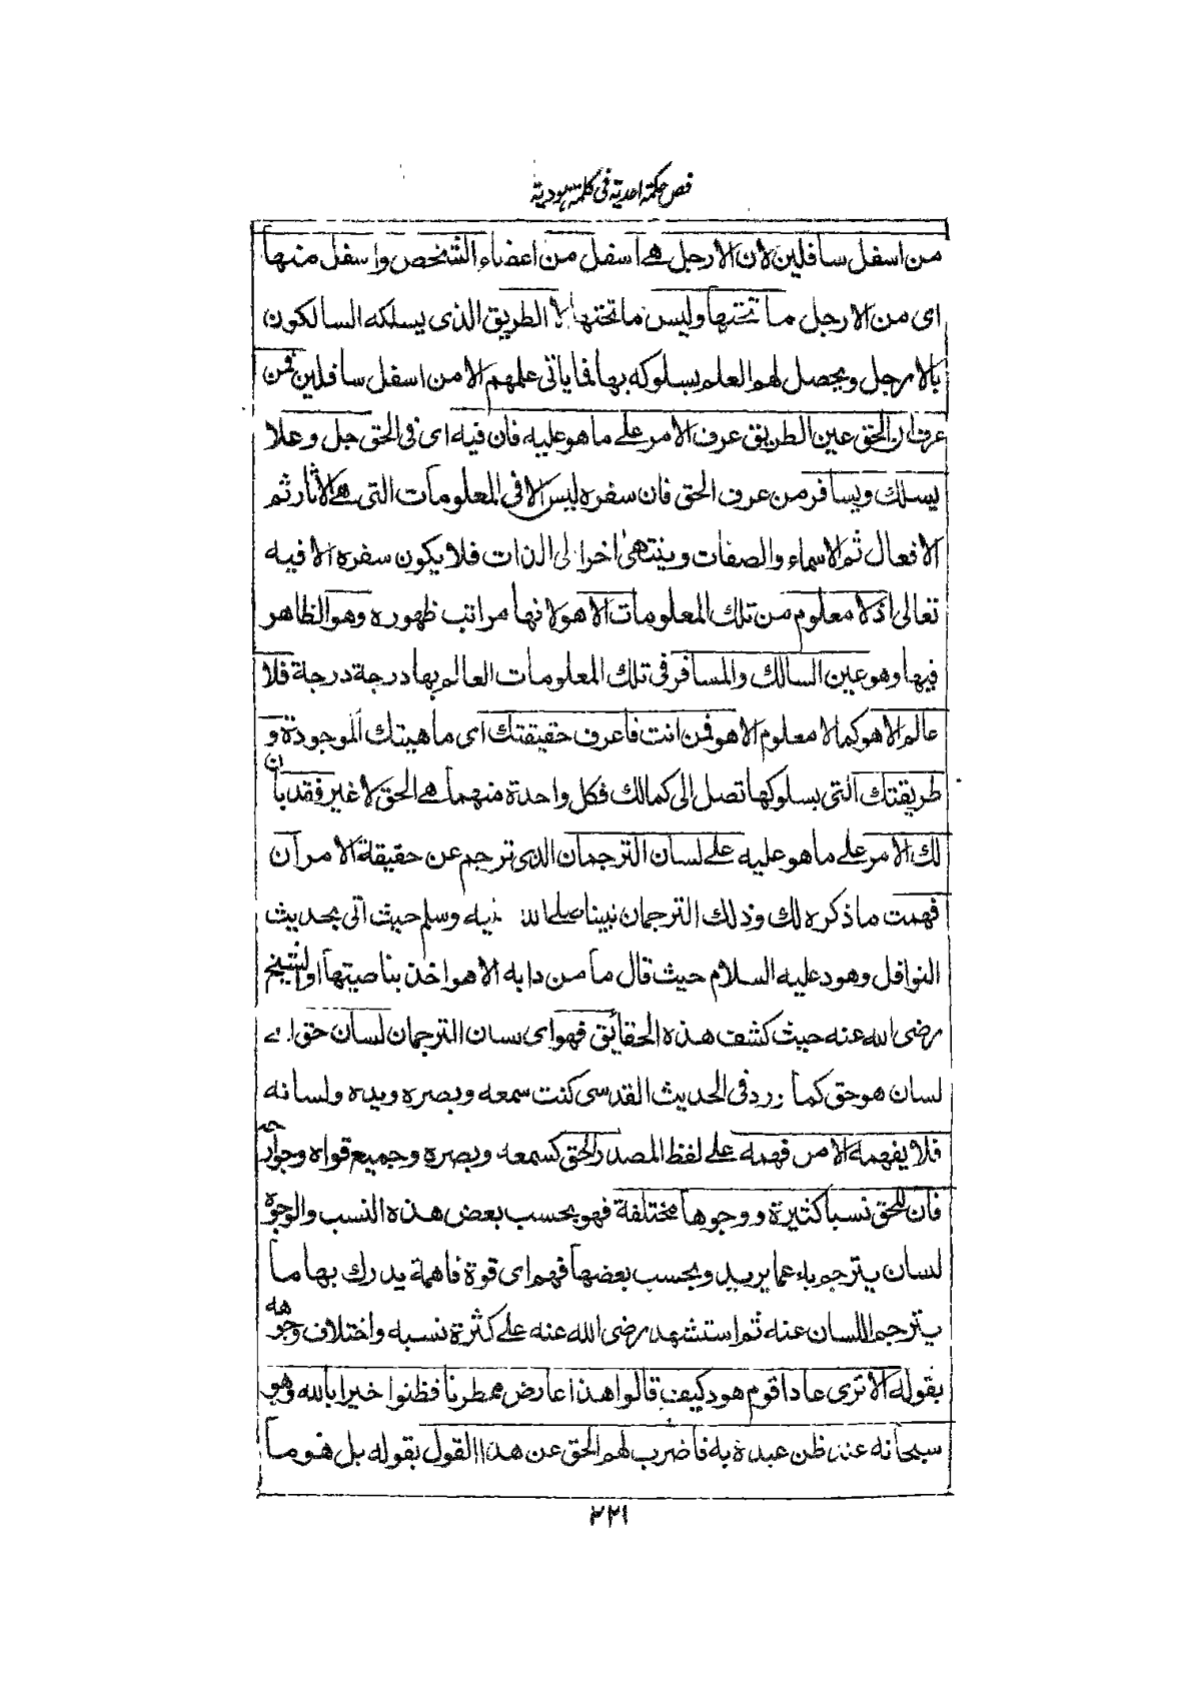 فص حكمة احدية فى كلمة هودية
من اسفل سافلين لان الارجل هى اسفل من اعضاء الشخص واسفل منها
اى من الارجل ما تحتها وليس ما تحتها الا الطريق الذى يسلكه السالكون
بالارجل ويحصل لهم العلم بسلوكه بها فما ياتى علمهم الا من اسفل سافلين فمن
عرف ان الحق عين الطريق عرف الامر على ما هو عليه فان فيه اى فى الحق جل وعلا
يسلك ويسافر من عرف الحق فان سفره ليس الا فى المعلومات التى هى الاثار ثم
الافعال ثم الاسماء والصفات وينتهى اخرا لى الذات فلا يكون سفره الا فيه
تعالى اذ لا معلوم من تلك المعلومات الا هو لانها مراتب ظهوره وهو الظاهر
فيها وهو عين السالك والمسافر فى تلك المعلومات العالم بها درجة درجة فلا
عالم الا هو كما لا معلوم الا هو فمن انت فاعرف حقيقتك اى ماهيتك الموجودة و
طريقتك التى بسلوكها تصل الى كمالك فكل واحدة منهما هى الحق لا غير فقد بان
لك الامر على ما هو عليه على لسان الترجمان الذى ترجم عن حقيقة الامر ان
فهمت ما ذكره لك وذلك الترجمان نبينا صلى الله عليه وسلم حيث اتى بحديث
النوافل وهود عليه السلام حيث قال ما من دابه الا هو اخذ بناصيتها او الشيخ
رضى الله عنه حيث كشف هذه الحقائق فهو اى لسان الترجمان لسان حق اى
لسان هو حق كما ورد فى الحديث القدسى كنت سمعه وبصره ويده ولسانه
فلا يفهمه الا من فهمه على لفظ المصدر الحق كسمعه وبصره وجميع قواه وجوارحه
فان للحق نسبا كثيرة ووجوها مختلفة فهو بحسب بعض هذه النسب والوجوه
لسان يترجم به عما يريد وبحسب بعضها فهم اى قوة فاهمة يدرك بها ما
يترجم اللسان عنه ثم استشهد رضى الله عنه على كثرة نسبه واختلاف وجوهه
بقوله الا ترى عادا قوم هود كيف قالوا هذا عارض ممطرنا فظنوا خيرا بالله وهو
سبحانه عند ظن عبده به فاضرب لهم الحق عن هذا القول بقوله بل هو ما
٢٢١